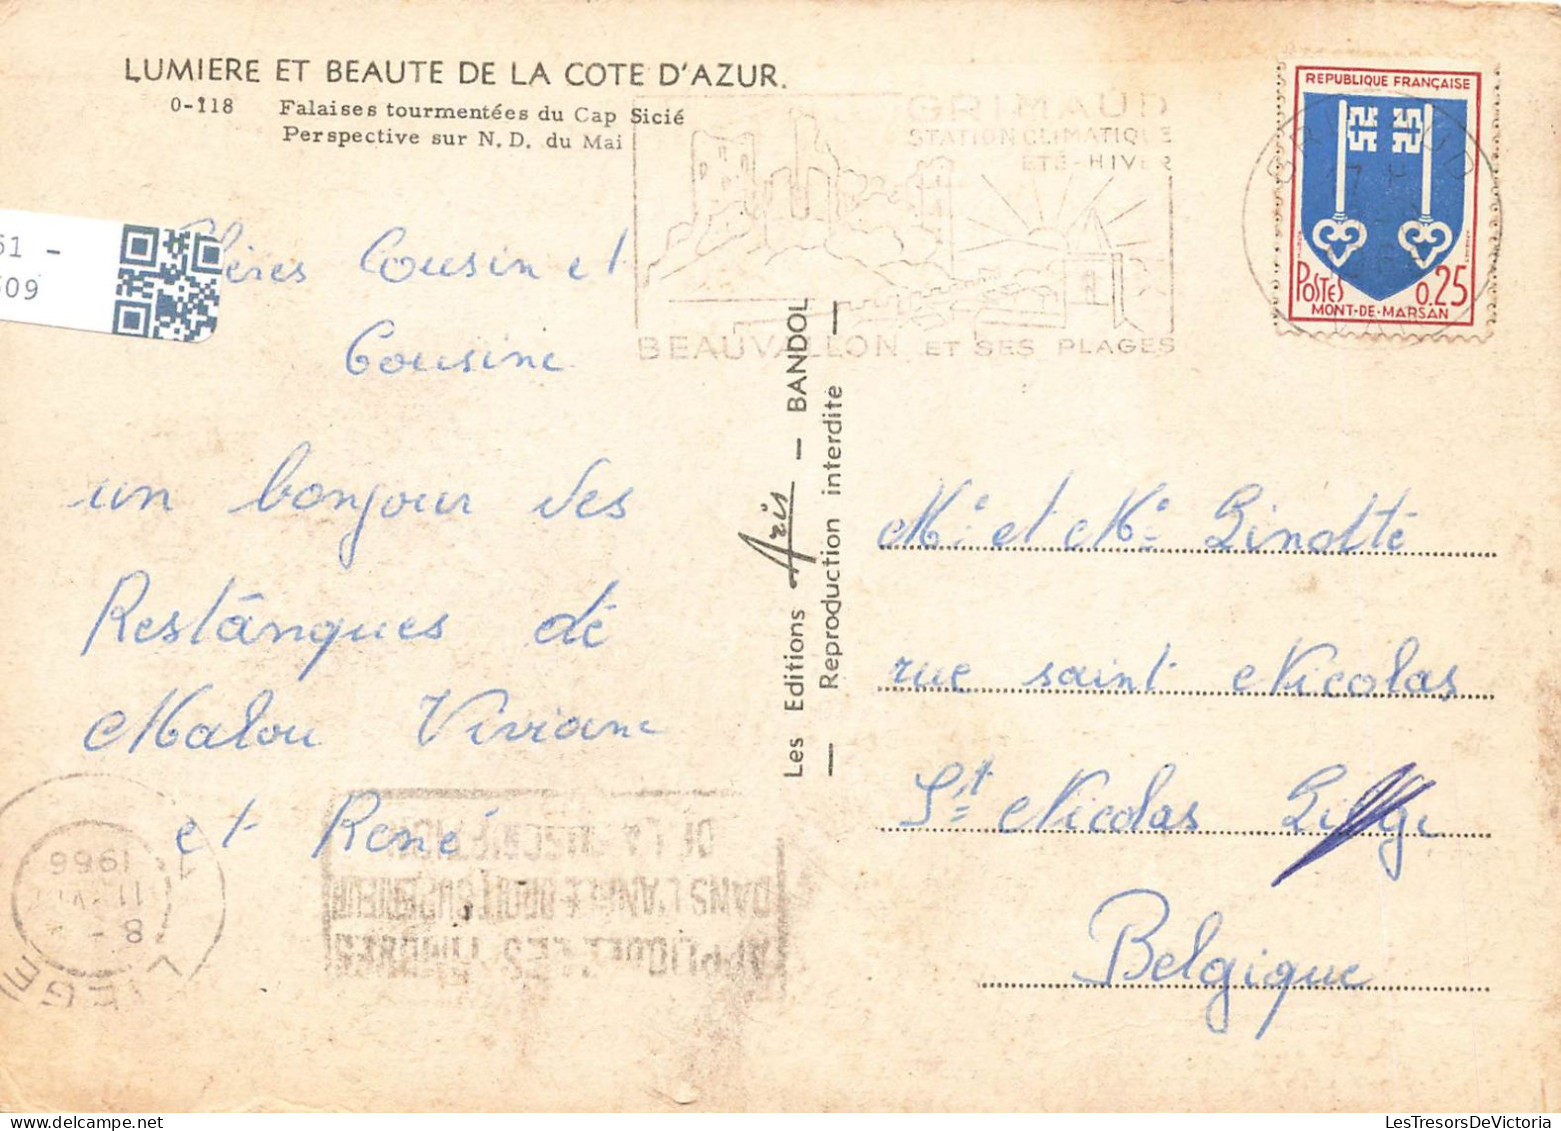 LUMIERE ET BEAUTE DE LA COTE D'AZUR.
0-118 Falaises tourmentées du Cap Sicié
Perspective sur N. D. du Mai
GRIMAUD
STATION CLIMATIQUE
ÉTÉ-HIVER
BEAUVALLON ET SES PLAGES
REPUBLIQUE FRANÇAISE
POSTES 0.25
MONT-DE-MARSAN
61 -
609
Chères Cousin et
Cousine
un bonjour des
Restanques de
Malou Viviane
et René
Les Editions Aris — BANDOL
— Reproduction interdite —
Mr et Me Linotte
rue saint Nicolas
St Nicolas Liège
Belgique
APPLIQUEZ LES TIMBRES
DANS L'ANGLE DROIT SUPERIEUR
DE LA SUSCRIPTION
LIEGE
8 -
11
1966
LesTresorsDeVictoria.com